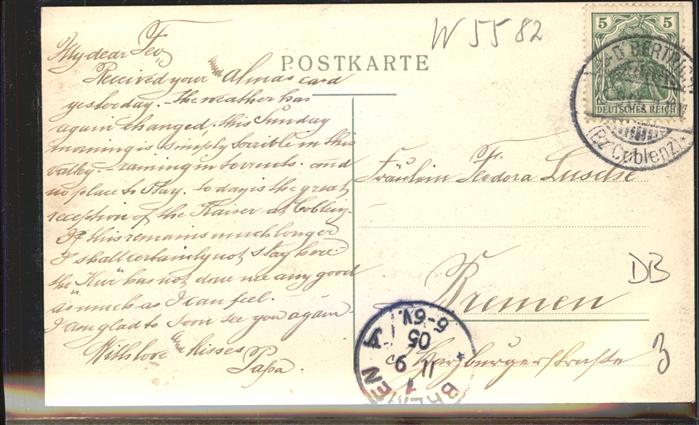 W 55 82
POSTKARTE
5 5
DEUTSCHES REICH
BERTRICH
(Bz Coblenz)
My dear Feo,
Received your & Almas card
yesterday – the weather has
again changed, this Sunday
morning is simply terrible in this
valley – raining in torrents – and
no place to stay. To day is the great
reception of the Kaiser at Coblenz.
If this remains much longer
I shall certainly not stay here
the Kur has not done me any good
as much as I can feel.
I am glad to soon see you again.
With love & kisses
Papa.
Fräulein Feodora
Bremen
DB
3
BREMEN
11 9 05
6-7 V.